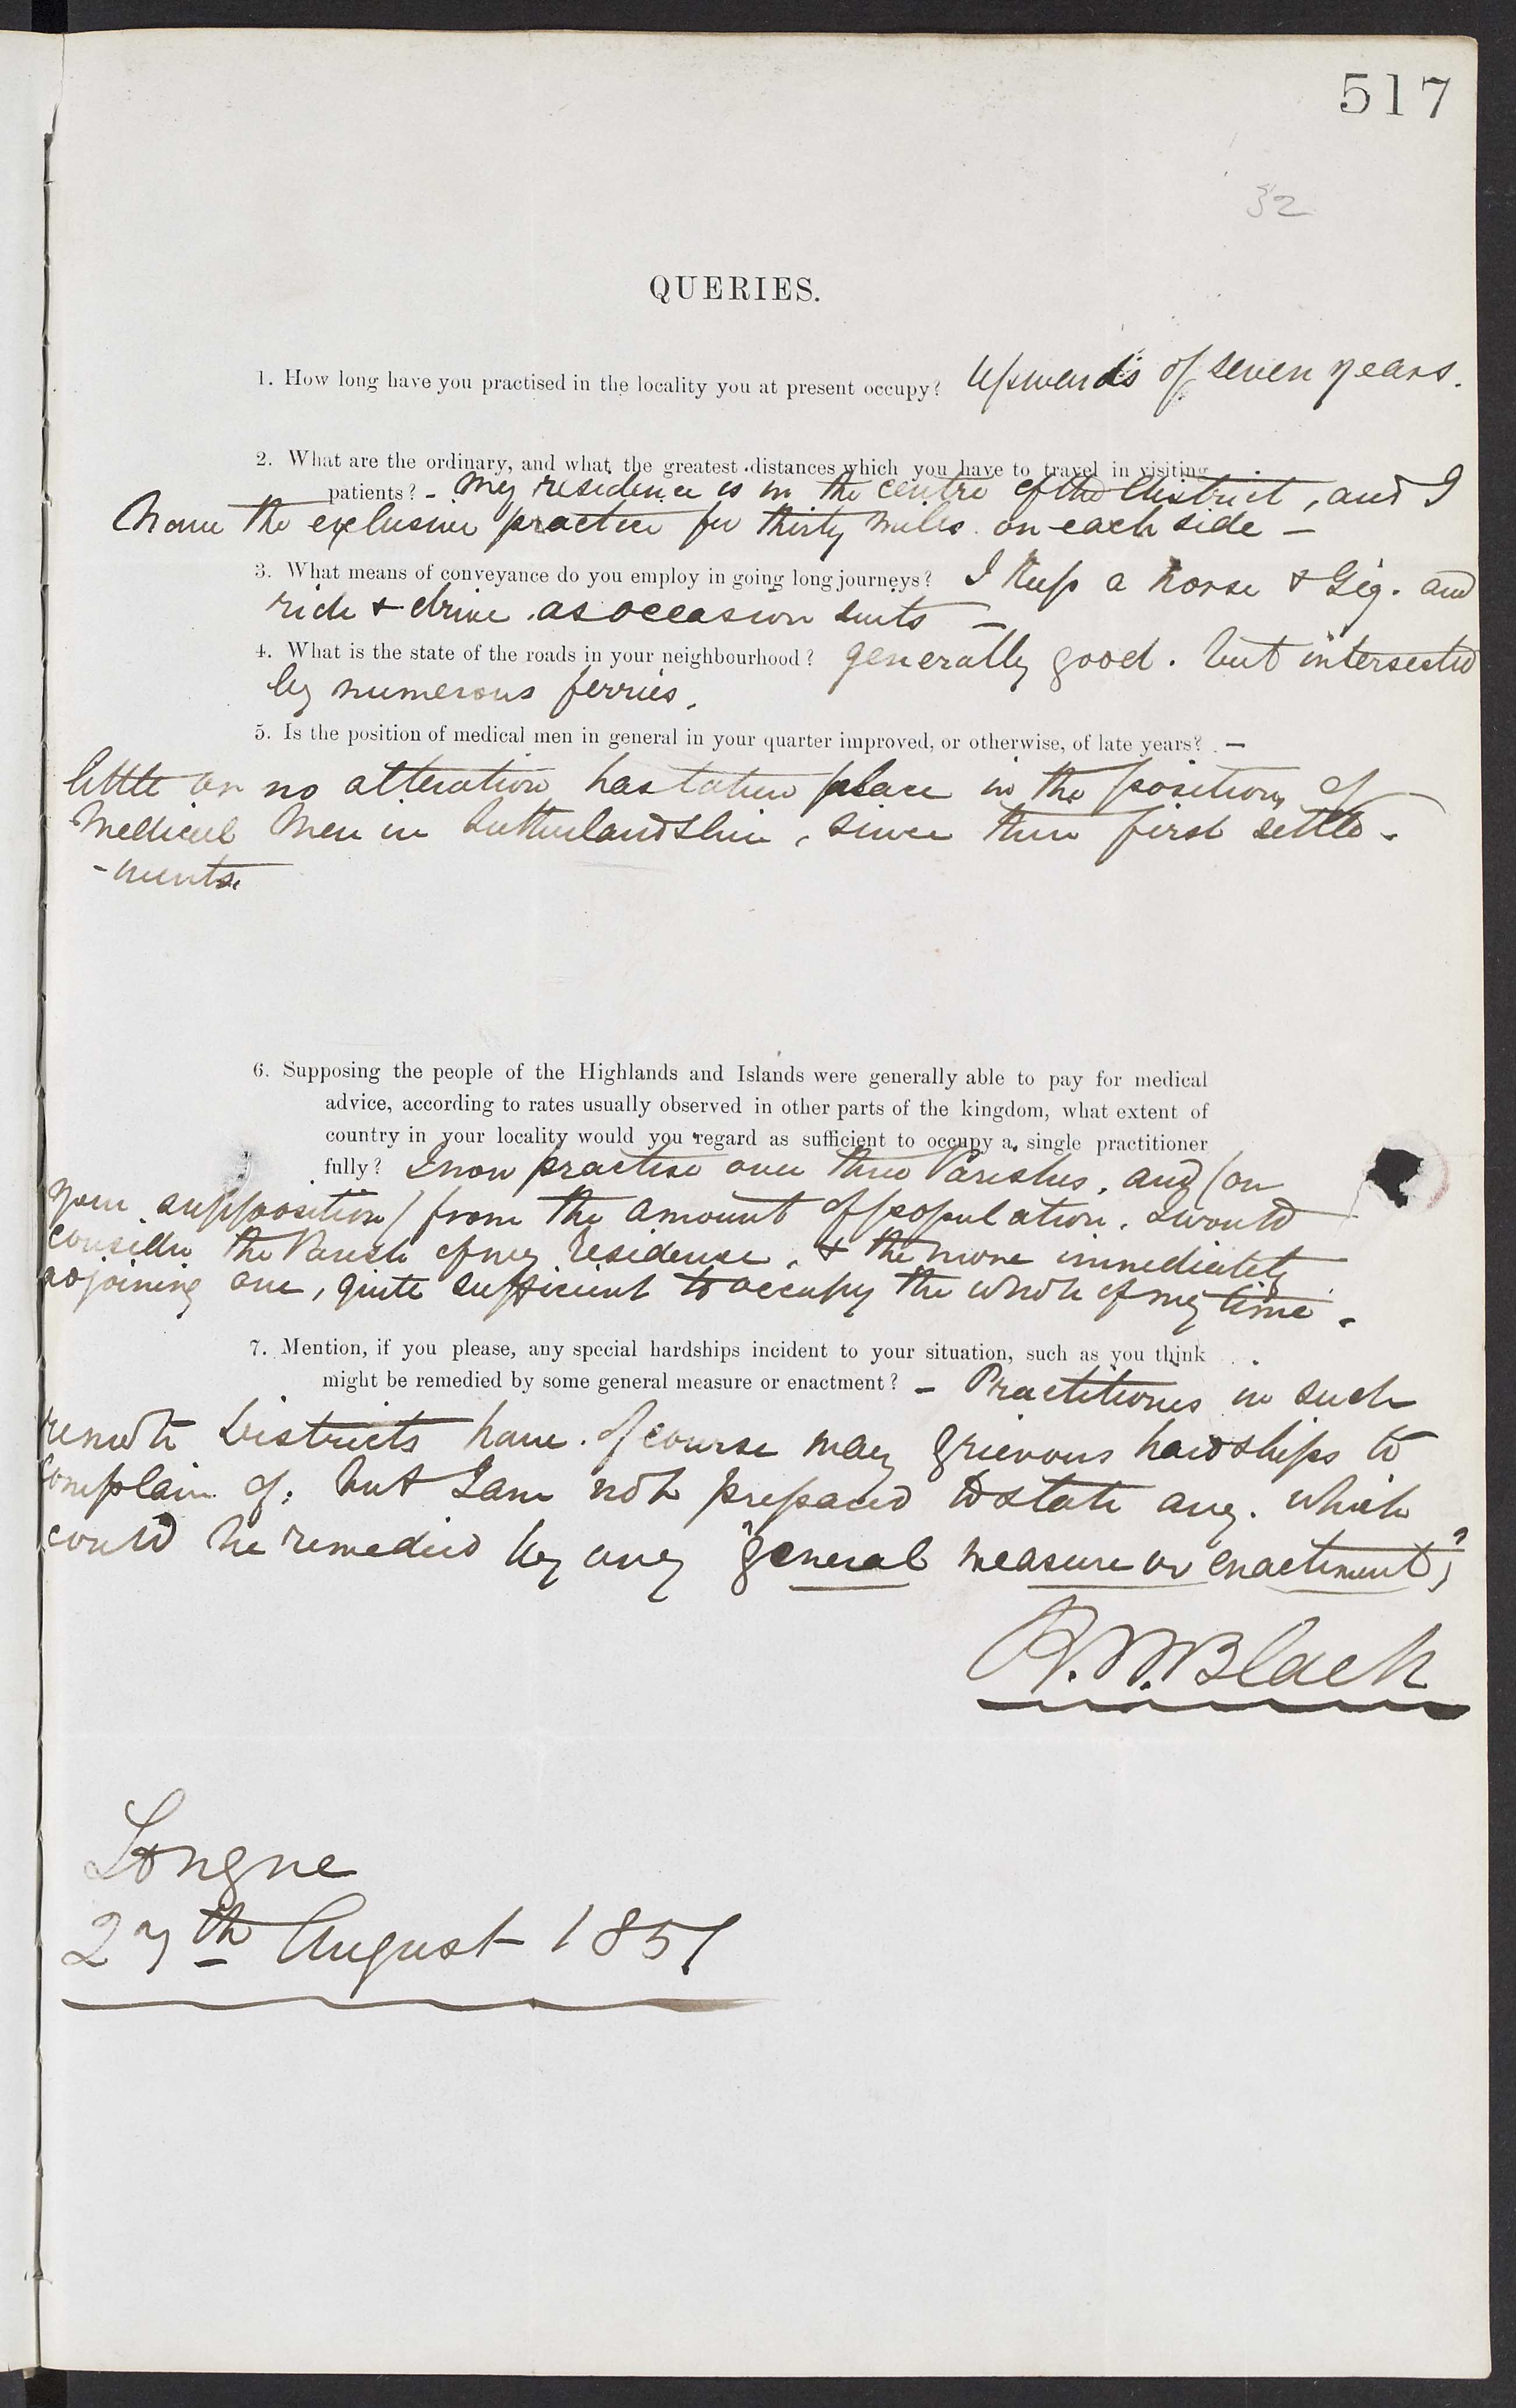 517
32
QUERIES.
1. How long have you practised in the locality you at present occupy? Upwards of seven years.
2. What are the ordinary, and what the greatest distances which you have to travel in visiting
patients? - My residence is in the centre of the District, and I
have the exclusive practice for thirty miles on each side -
3. What means of conveyance do you employ in going long journeys? I keep a horse & Gig. and
ride & drive as occasion suits -
4. What is the state of the roads in your neighbourhood? generally good. but intersected
by numerous ferries.
5. Is the position of medical men in general in your quarter improved, or otherwise, of late years? -
little or no alteration has taken place in the position of
Medical Men in Sutherlandshire, since their first settle-
-ments.
6. Supposing the people of the Highlands and Islands were generally able to pay for medical
advice, according to rates usually observed in other parts of the kingdom, what extent of
country in your locality would you regard as sufficient to occupy a single practitioner
fully? I now practise over three Parishes, and (on
your supposition) from the amount of population. I would
consider the Parish of my residence, & the more immediately
adjoining one, quite sufficient to occupy the whole of my time.
7. Mention, if you please, any special hardships incident to your situation, such as you think
might be remedied by some general measure or enactment? - Practitioners in such
remote Districts have of course many grievous hardships to
complain of; but I am not prepared to state any. which
could be remedied by any "general measure or enactment"
Black
Tongue
27th August 1851